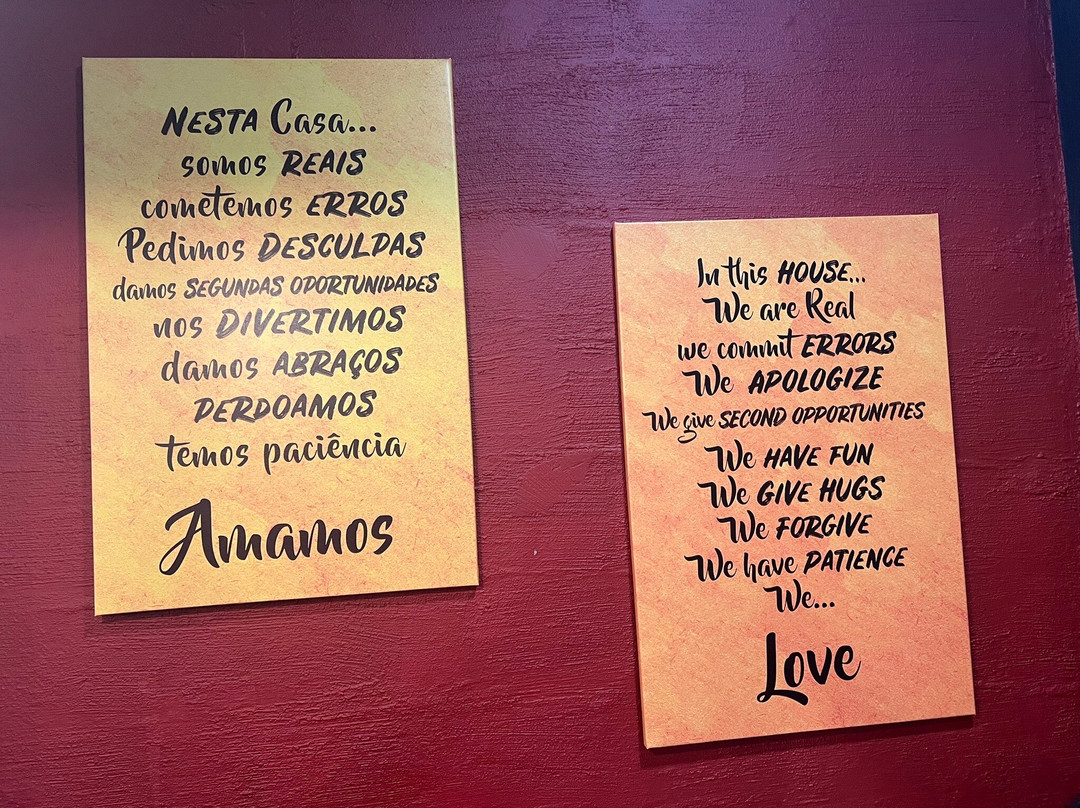 NESTA Casa...
somos REAIS
cometemos ERROS
Pedimos DESCULPAS
damos SEGUNDAS OPORTUNIDADES
nos DIVERTIMOS
damos ABRAÇOS
PERDOAMOS
temos paciência
Amamos
In this HOUSE...
We are Real
we commit ERRORS
We APOLOGIZE
We give SECOND OPPORTUNITIES
We HAVE FUN
We GIVE HUGS
We FORGIVE
We have PATIENCE
We...
Love